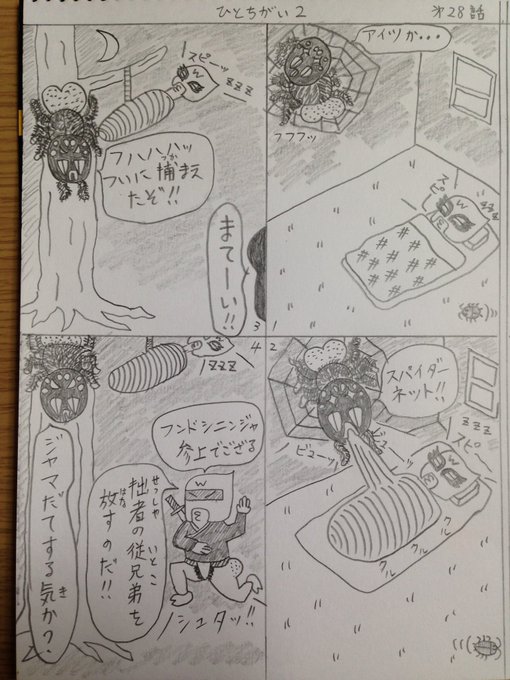 ひとちがい2
第28話
アイツか・・・
フフフッ
スピー
ZZZ
1
2
スパイダー
ネット!!
ビューッ
ビューッ
ZZZ
スピー
クル
クル
クル
クル
スピーッ
ZZZ
フハハハッ
ついに捕まえ
つか
たぞ!!
まてーい!!
3
4
ZZZ
フンドシニンジャ
参上でござる
拙者の従兄弟を
せっしゃ
いとこ
放すのだ!!
はな
シュタッ!!
ジャマだてする気か?
き